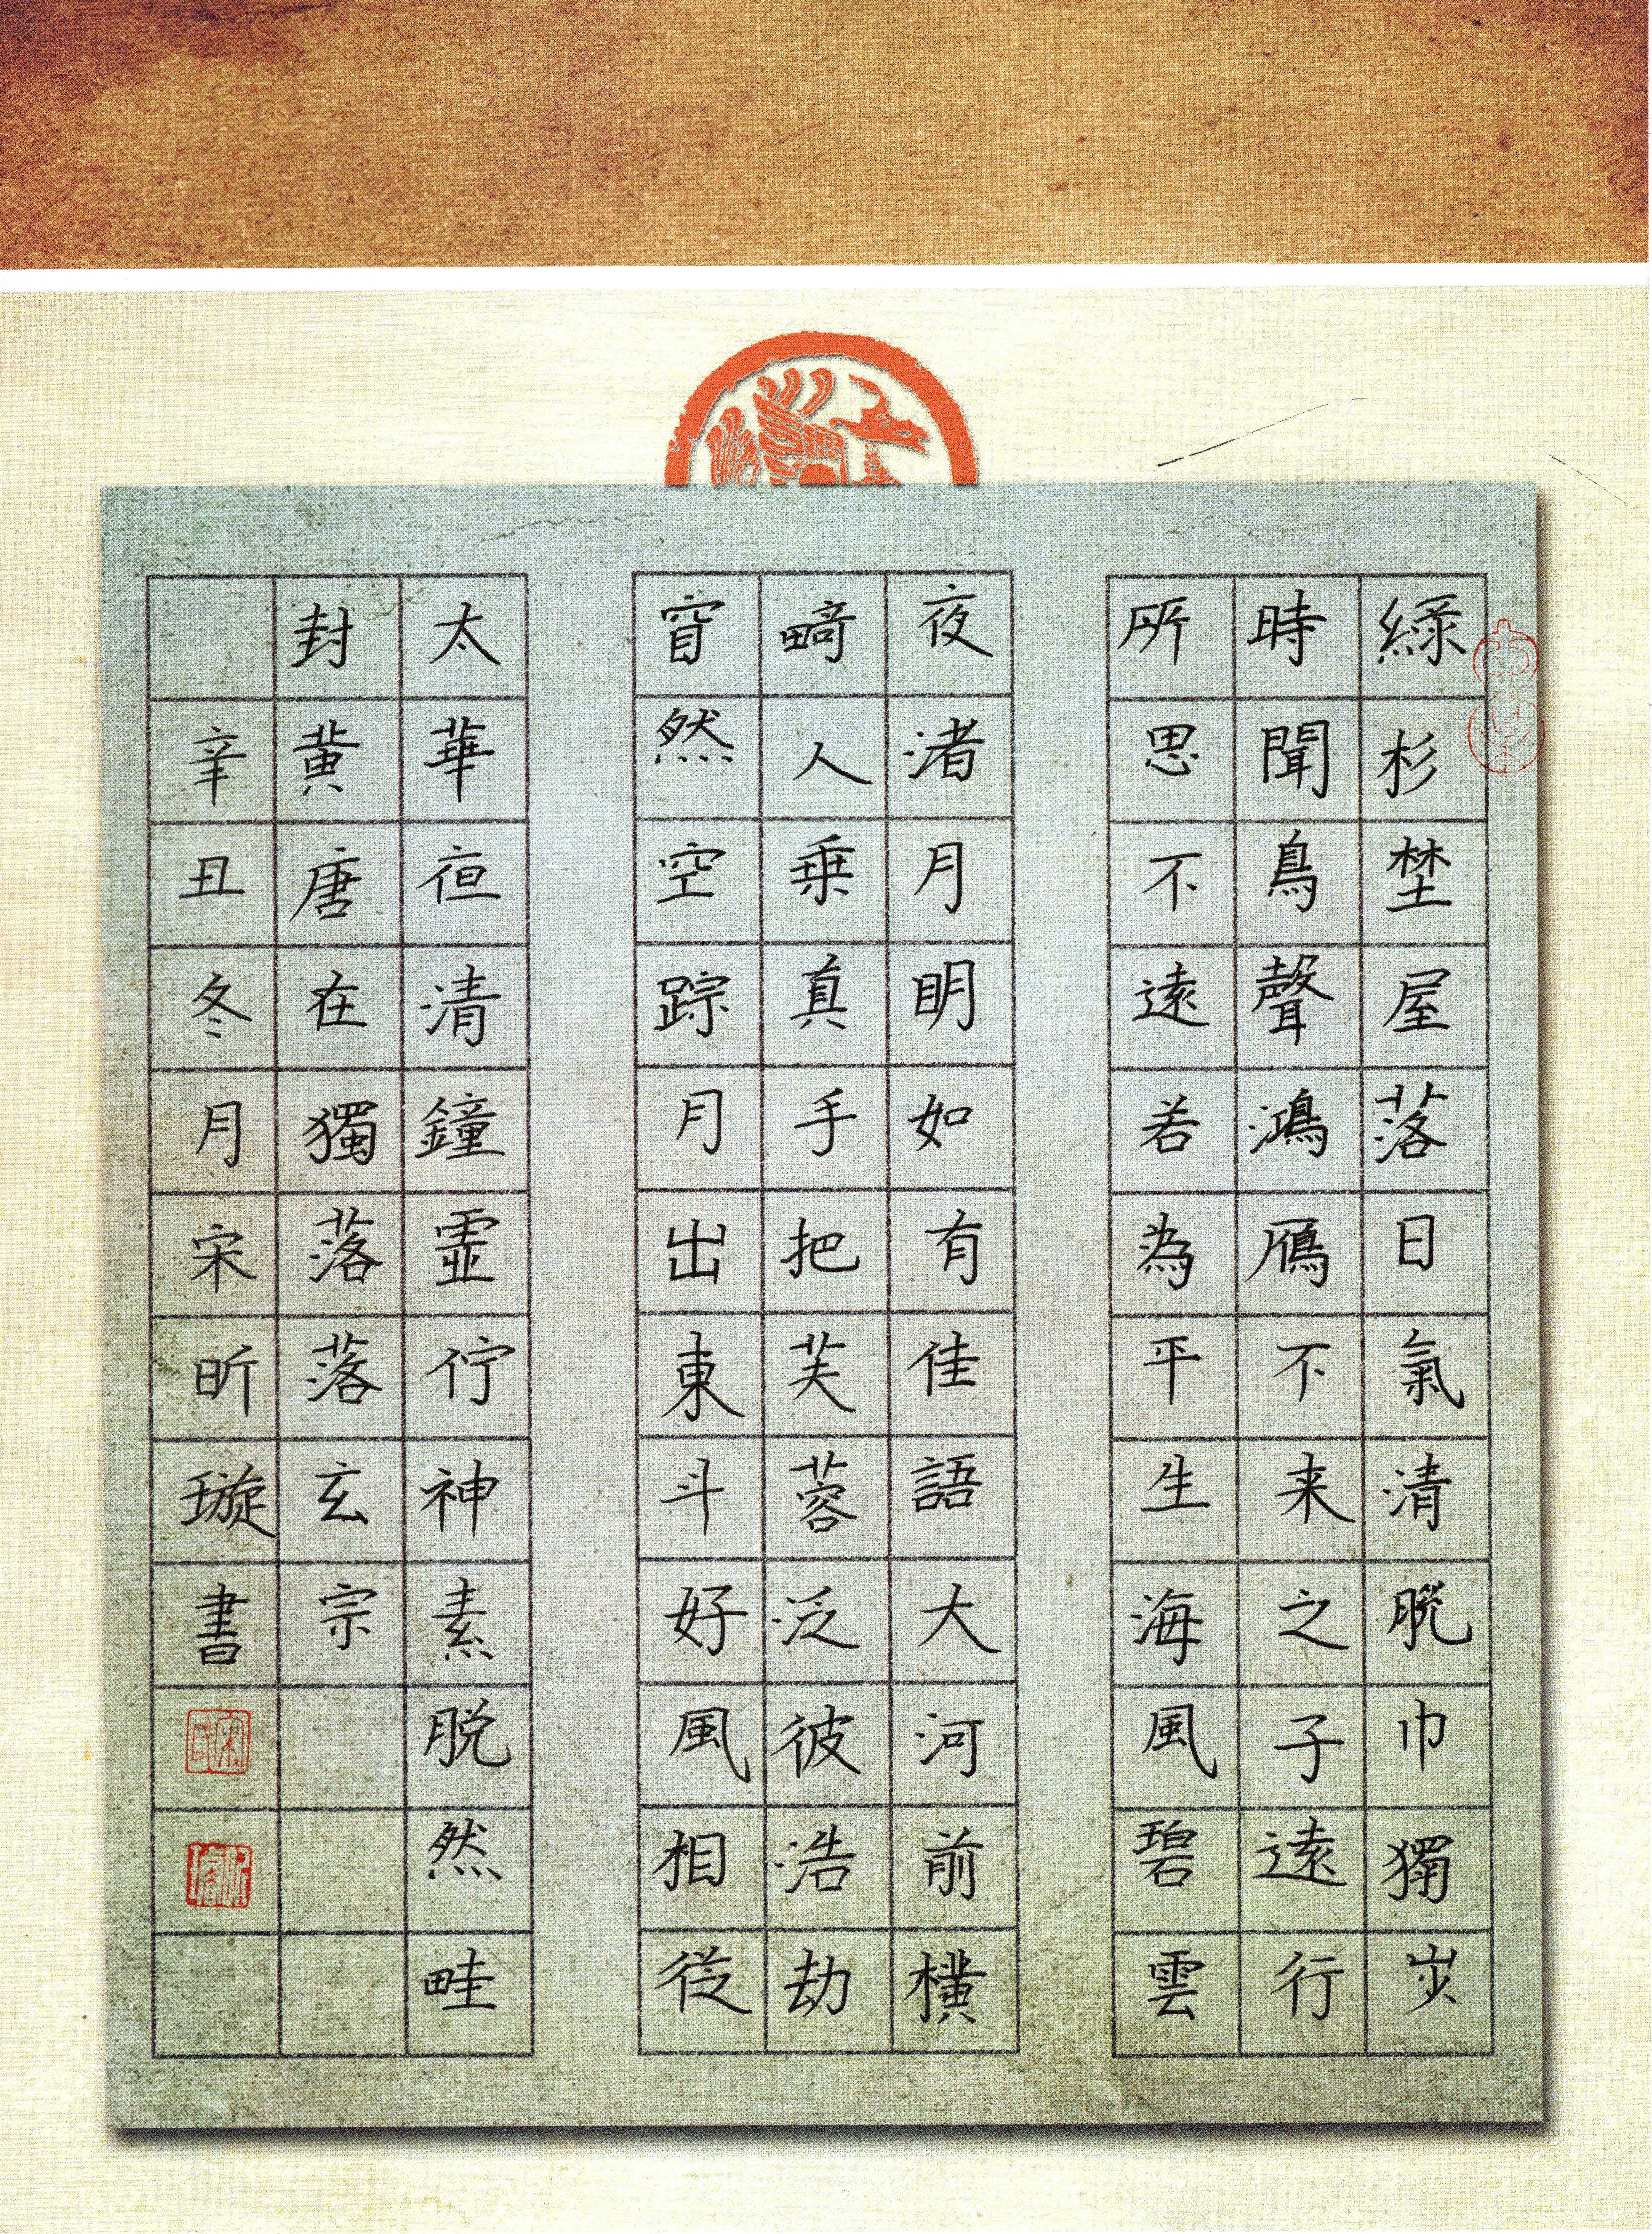 緑杉埜屋落日氣清脫巾獨步
時聞鳥聲鴻鴈不来之子遠行
所思不遠若為平生海風碧雲
夜渚月明如有佳語大河前橫
畸人乗真手把芙蓉泛彼浩劫
窅然空踪月出東斗好風相從
太華夜清鐘虛佇神素脱然畦
封黄唐在獨落落玄宗
辛丑冬月宋昕璇書